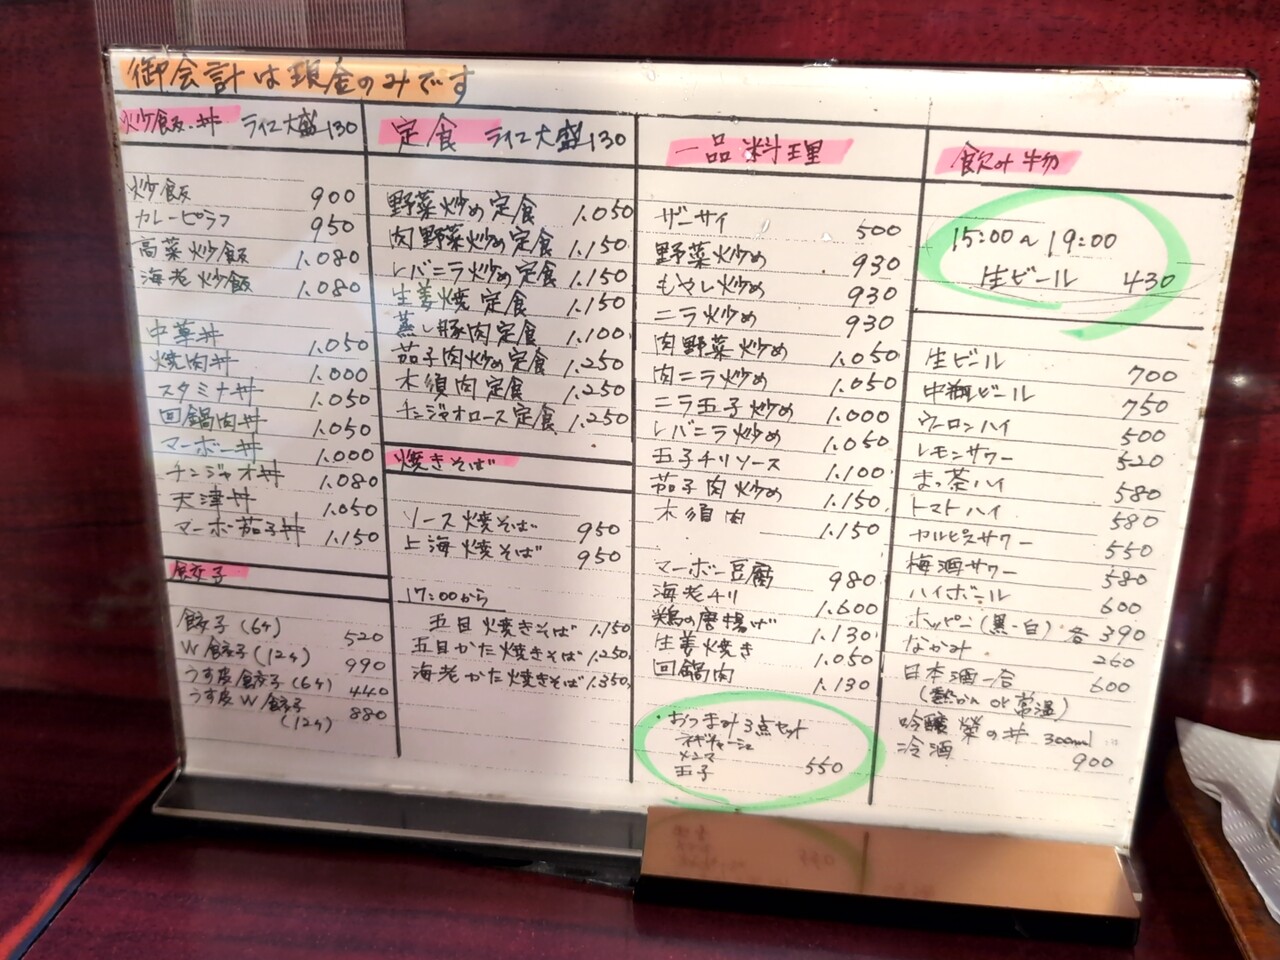 御会計は現金のみです
炒飯.丼 ライス大盛130
炒飯 900
カレーピラフ 950
高菜炒飯 1.080
海老炒飯 1.080
中華丼 1.050
焼肉丼 1.000
スタミナ丼 1.050
回鍋肉丼 1.050
マーボー丼 1.000
チンジャオ丼 1.080
天津丼 1.050
マーボ茄子丼 1.150
餃子
餃子(6ケ) 520
W餃子(12ケ) 990
うす皮餃子(6ケ) 440
うす皮W餃子
(12ケ) 880
定食 ライス大盛130
野菜炒め定食 1.050
肉野菜炒め定食 1.150
レバニラ炒め定食 1.150
生姜焼定食 1.150
蒸し豚肉定食 1.100
茄子肉炒め定食 1.250
木須肉定食 1.250
チンジャオロース定食 1.250
焼きそば
ソース焼そば 950
上海焼そば 950
17:00から
五目焼きそば 1.150
五目かた焼きそば 1.250
海老かた焼きそば 1.350
一品料理
ザーサイ 500
野菜炒め 930
もやし炒め 930
ニラ炒め 930
肉野菜炒め 1.050
肉ニラ炒め 1.050
ニラ玉子炒め 1.000
レバニラ炒め 1.050
玉子チリソース 1.100
茄子肉炒め 1.150
木須肉 1.150
マーボー豆腐 980
海老チリ 1.600
鶏の唐揚げ 1.130
生姜焼き 1.050
回鍋肉 1.130
・おつまみ3点セット
ネギチャーシュー
メンマ
玉子 550
飲み物
15:00〜19:00
生ビール 430
生ビール 700
中瓶ビール 750
ウーロンハイ 500
レモンサワー 520
まっ茶ハイ 580
トマトハイ 580
カルピスサワー 550
梅酒サワー 580
ハイボール 600
ホッピー(黒・白) 各390
なかみ 260
日本酒一合 600
(熱かん or 常温)
吟醸 榮の井 300ml
冷酒 900